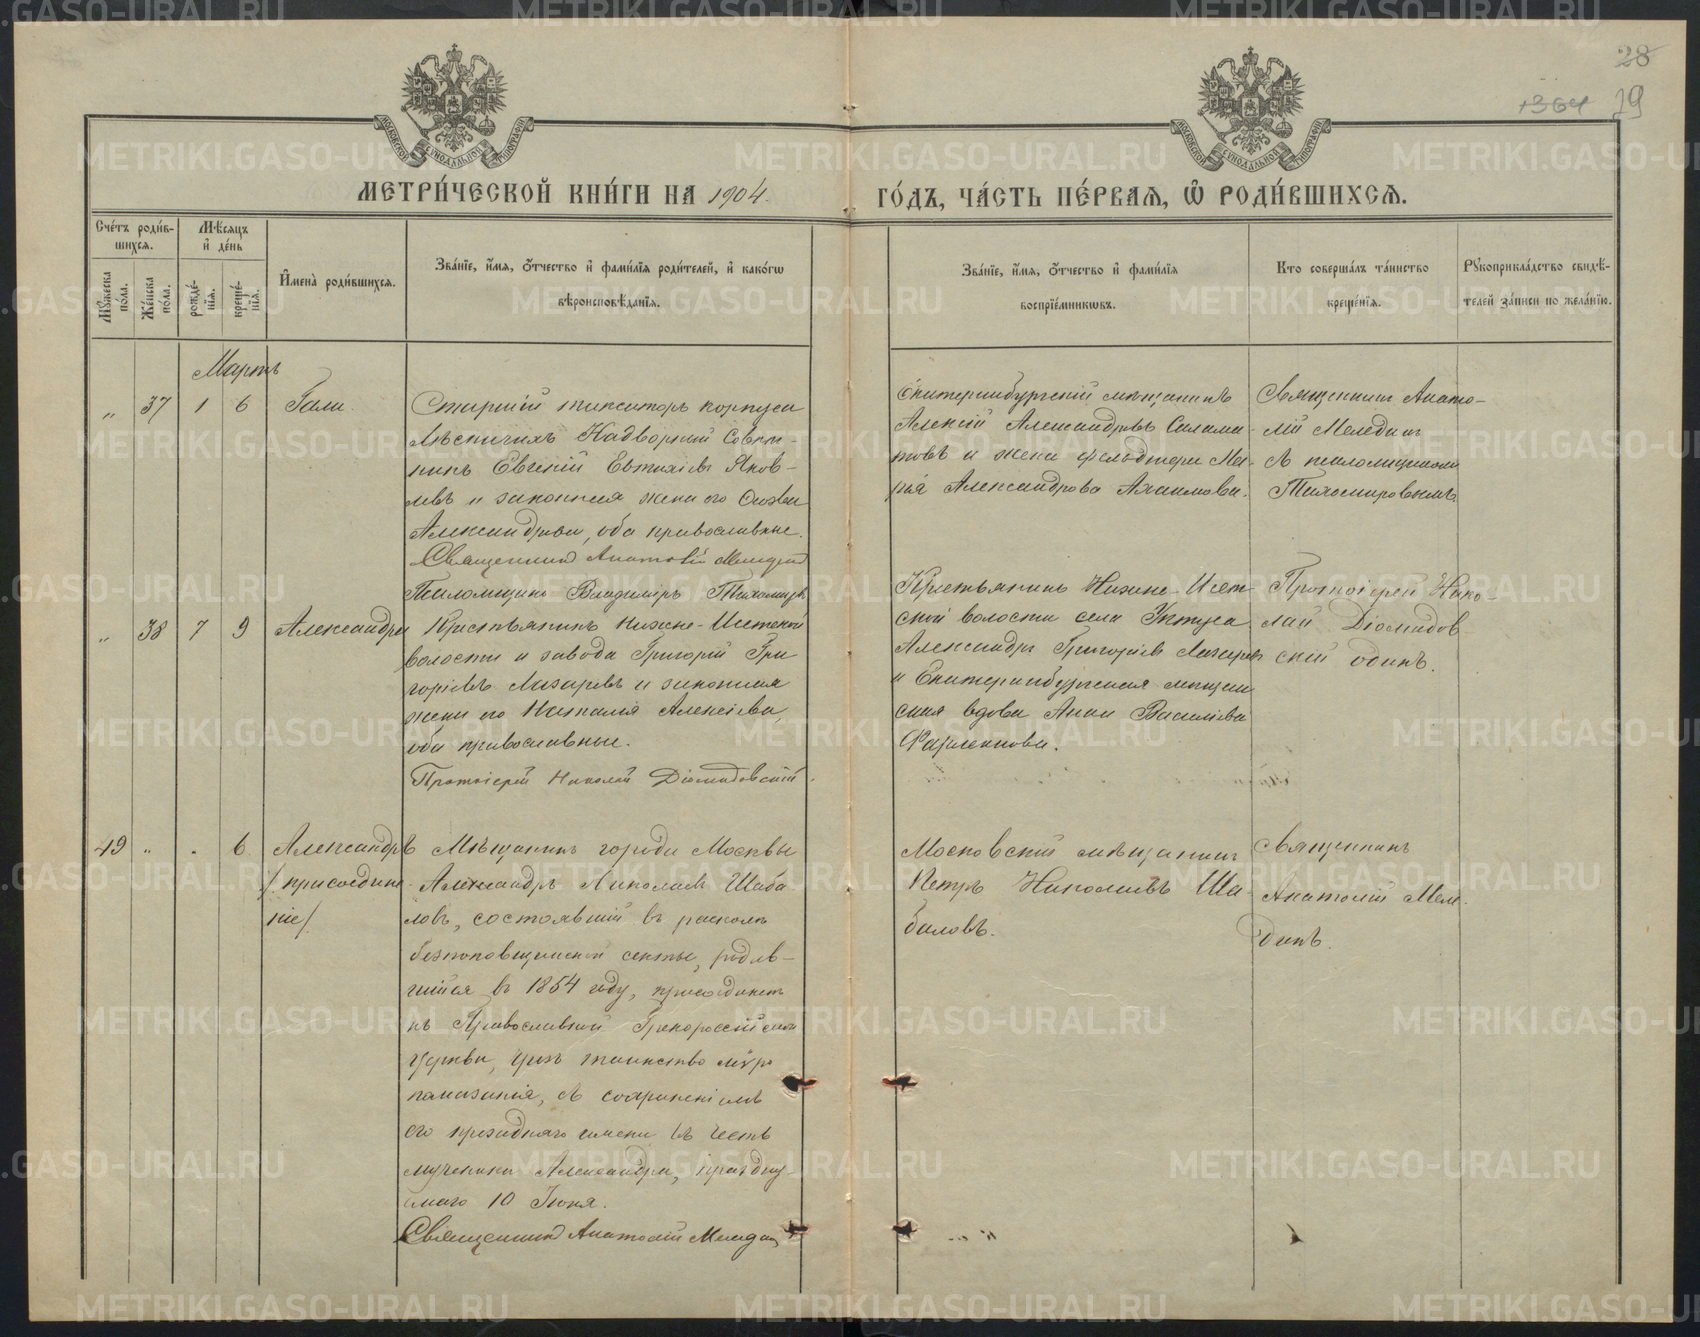 28
1364 29
МОСКОВСКОЙ СѴНОДАЛЬНОЙ ТИПОГРАФІИ
МОСКОВСКОЙ СѴНОДАЛЬНОЙ ТИПОГРАФІИ
МЕТРИ́ЧЕСКОЙ КНИ́ГИ НА 1904. ГО́ДЪ, ЧА́СТЬ ПЕ́РВАЯ, Ѡ РОДИ́ВШИХСЯ.
Сче́тъ роди́в-
шихся.
Мѣсяцъ
и҆ де́нь
Мꙋжеска по́ла.
Же́нска по́ла.
рожде́-
нїя.
креще́-
нїя.
И҆мена̀ роди́вшихся.
Зва́нїе, и҆́мя, ѻ҆́тчество и҆ фами́лїя роди́телей, и҆ како́гѡ
вѣроисповѣ́данїя.
Зва́нїе, и҆́мя, ѻ҆́тчество и҆ фами́лїя
воспрїе́мникѡвъ.
Кто соверша́лъ та́инство
креще́нїя.
Рꙋкоприкла́дство свидѣ́-
телей за́писи по жела́нїю.
Мартъ
„ 37 1 6 Гали.
Старшій таксаторъ корпуса
Лѣсничихъ Надворный Совѣт-
никъ Евгеній Евтихіевъ Яков-
левъ и законная жена его
Александрова, оба православные.
Священникъ Анатолій Мелединъ
Псаломщикъ Владиміръ Тихомировъ
Екатеринбургскій мѣщанинъ
Алексій Александровъ Салама-
товъ и жена фельдшера Ма-
рья Александрова Акимова.
Священникъ Анато-
лій Мелединъ
съ псаломщикомъ
Тихомировымъ.
„ 38 7 9 Александра
Крестьянинъ Нижне-Исетской
волости и завода Григорій Гри
горіевъ Лазаревъ и законная
жена его Наталія Алексіева,
оба православные.
Протоіерей Николай Діомидовскій.
Крестьянинъ Нижне-Исет
ской волости села Уктуса
Александръ Григоріевъ Лазаревъ
и Екатеринбургская мѣщан
ская вдова Анна Василіева
Протоіерей Нико-
лай Діомидов
скій одинъ.
49 „ „ 6 Александръ
/присоедине-
ніе/
Мѣщанинъ города Москвы
Александръ Николаевъ Шаба
ловъ, состоявшій въ расколѣ
безпоповщинской секты, родив-
шійся въ 1854 году, присоединенъ
къ Православной Грекороссійской
Церкви, чрезъ таинство мѵро
помазанія, съ сохраненіемъ
его прежняго имени въ честь
мученика Александра, праздну-
емаго 10 Іюня.
Священникъ Анатолій Меледин
Московскій мѣщанинъ
Петръ Николаевъ Ша-
баловъ.
Священникъ
Анатолій Меле-
динъ.
METRIKI.GASO-URAL.RU